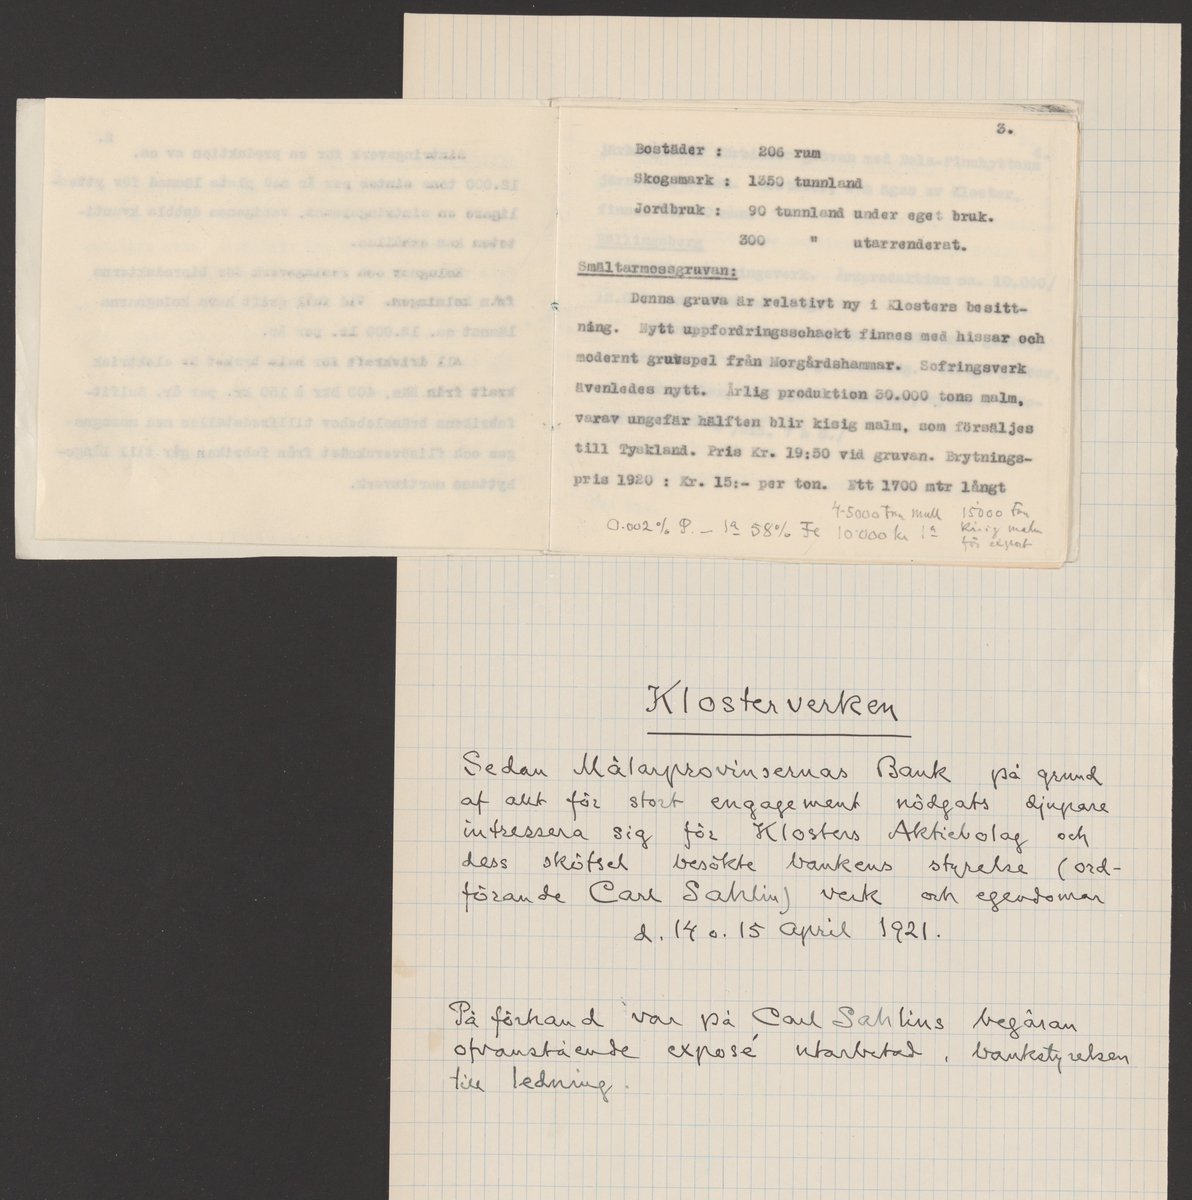 3.
Bostäder : 206 rum
Skogsmark : 1350 tunnland
Jordbruk : 90 tunnland under eget bruk.
300 " utarrenderat.
Smältarmossgruvan:
Denna gruva är relativt ny i Klosters besitt-
ning. Nytt uppfordringsschackt finnes med hissar och
modernt gruvspel från Morgårdshammar. Sofringsverk
ävenledes nytt. Årlig produktion 30.000 tons malm,
varav ungefär hälften blir kisig malm, som försäljes
till Tyskland. Pris Kr. 19:50 vid gruvan. Brytnings-
pris 1920 : Kr. 15:- per ton. Ett 1700 mtr långt
4-5000 Ton mull 15000 Ton
0.002% P. – 1a 58% Fe 10000 kr 1a kisig malm
för export
Klosterverken
Sedan Mälarprovinsernas Bank på grund
af allt för stort engagement nödgats djupare
intressera sig för Klosters Aktiebolag och
dess skötsel besökte bankens styrelse (ord-
förande Carl Sahlin) verk och egendomar
d. 14 o. 15 April 1921.
På förhand var på Carl Sahlins begäran
ofvanstående exposé utarbetad, bankstyrelsen
till ledning.